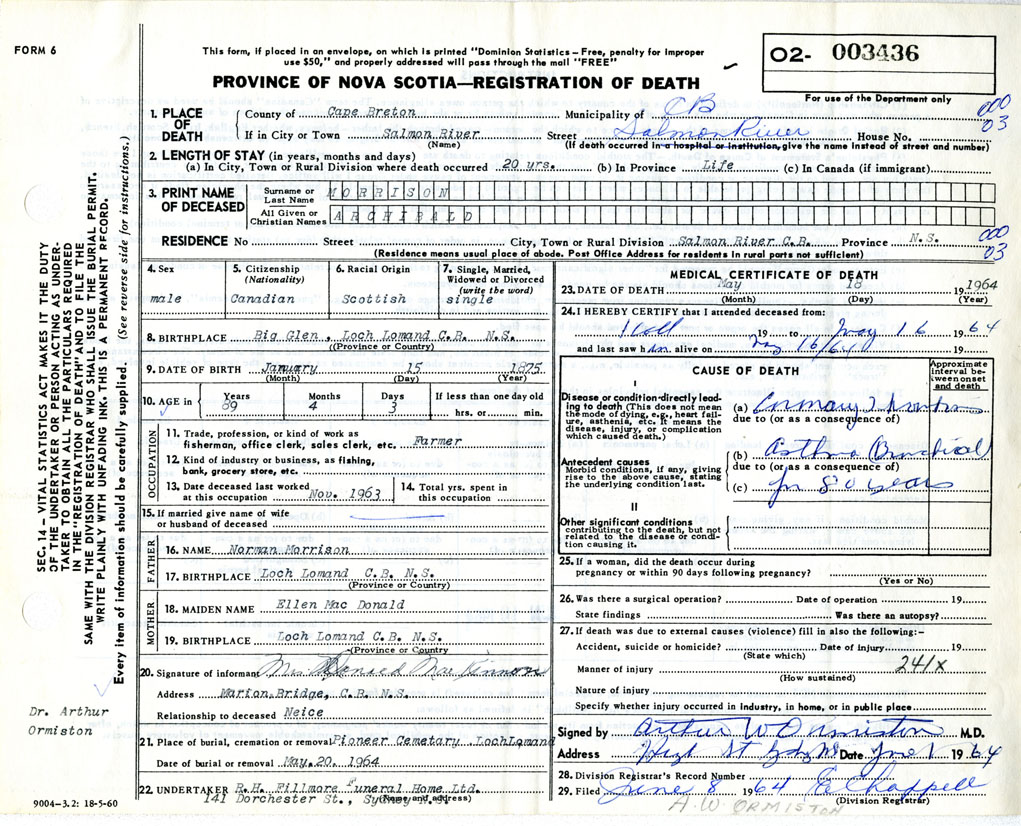 FORM 6
This form, if placed in an envelope, on which is printed "Dominion Statistics – Free, penalty for improper
use $50," and properly addressed will pass through the mail "FREE"
PROVINCE OF NOVA SCOTIA—REGISTRATION OF DEATH
O2- 003436
For use of the Department only
1. PLACE OF DEATH
County of Cape Breton Municipality of CB 000
If in City or Town Salmon River Street Salmon River House No. 03
(Name) (If death occurred in a hospital or institution, give the name instead of street and number)
2. LENGTH OF STAY (in years, months and days)
(a) In City, Town or Rural Division where death occurred 20 yrs. (b) In Province Life (c) In Canada (if immigrant)
3. PRINT NAME OF DECEASED
Surname or Last Name MORRISON
All Given or Christian Names ARCHIBALD
RESIDENCE No Street City, Town or Rural Division Salmon River C.B. Province N.S. 000 03
(Residence means usual place of abode. Post Office Address for residents in rural parts not sufficient)
4. Sex
male
5. Citizenship (Nationality)
Canadian
6. Racial Origin
Scottish
7. Single, Married, Widowed or Divorced (write the word)
single
8. BIRTHPLACE Big Glen, Loch Lomand C.B. N.S.
(Province or Country)
9. DATE OF BIRTH January 15 1875
(Month) (Day) (Year)
10. AGE in Years Months Days If less than one day old
89 4 3 hrs. or min.
OCCUPATION
11. Trade, profession, or kind of work as
fisherman, office clerk, sales clerk, etc. Farmer
12. Kind of industry or business, as fishing,
bank, grocery store, etc.
13. Date deceased last worked
at this occupation Nov. 1963
14. Total yrs. spent in
this occupation
15. If married give name of wife
or husband of deceased
FATHER
16. NAME Norman Morrison
17. BIRTHPLACE Loch Lomand C.B. N.S.
(Province or Country)
MOTHER
18. MAIDEN NAME Ellen Mac Donald
19. BIRTHPLACE Loch Lomand C.B. N.S.
(Province or Country
20. Signature of informant Mrs. MacKinnon
Address Marion Bridge, C.B. N.S.
Relationship to deceased Neice
21. Place of burial, cremation or removal Pioneer Cemetary LochLomand
Date of burial or removal May. 20. 1964
22. UNDERTAKER R.H. Fillmore Funeral Home Ltd.
141 Dorchester St., Sydney N.S.
(Name and address)
MEDICAL CERTIFICATE OF DEATH
23. DATE OF DEATH May 18 1964
(Month) (Day) 19 (Year)
24. I HEREBY CERTIFY that I attended deceased from:
19 to May 16 1964
and last saw him alive on May 16/64 19
CAUSE OF DEATH
Approximate interval between onset and death
I
Disease or condition directly leading to death (This does not mean the mode of dying, e.g., heart failure, asthenia, etc. It means the disease, injury, or complication which caused death.)
(a) Coronary
due to (or as a consequence of)
Antecedent causes
Morbid conditions, if any, giving rise to the above cause, stating the underlying condition last.
(b) Asthma (Bronchial)
due to (or as a consequence of)
(c) for 80 years
II
Other significant conditions
contributing to the death, but not related to the disease or condition causing it.
25. If a woman, did the death occur during
pregnancy or within 90 days following pregnancy?
(Yes or No)
26. Was there a surgical operation? Date of operation 19
State findings Was there an autopsy?
27. If death was due to external causes (violence) fill in also the following:–
Accident, suicide or homicide? Date of injury 19
(State which)
Manner of injury 241X
(How sustained)
Nature of injury
Specify whether injury occurred in industry, in home, or in public place
Signed by Arthur W Ormiston M.D.
Address High St Date June 1 1964
28. Division Registrar's Record Number
29. Filed June 8 1964 E Chappell
(Division Registrar)
A.W. ORMISTON
SEC. 14 – VITAL STATISTICS ACT MAKES IT THE DUTY
OF THE UNDERTAKER OR PERSON ACTING AS UNDER-
TAKER TO OBTAIN ALL THE PARTICULARS REQUIRED
IN THE "REGISTRATION OF DEATH" AND TO FILE THE
SAME WITH THE DIVISION REGISTRAR WHO SHALL ISSUE THE BURIAL PERMIT.
WRITE PLAINLY WITH UNFADING INK. THIS IS A PERMANENT RECORD.
Every item of information should be carefully supplied. (See reverse side for instructions.)
Dr. Arthur
Ormiston
9004-3.2: 18-5-60